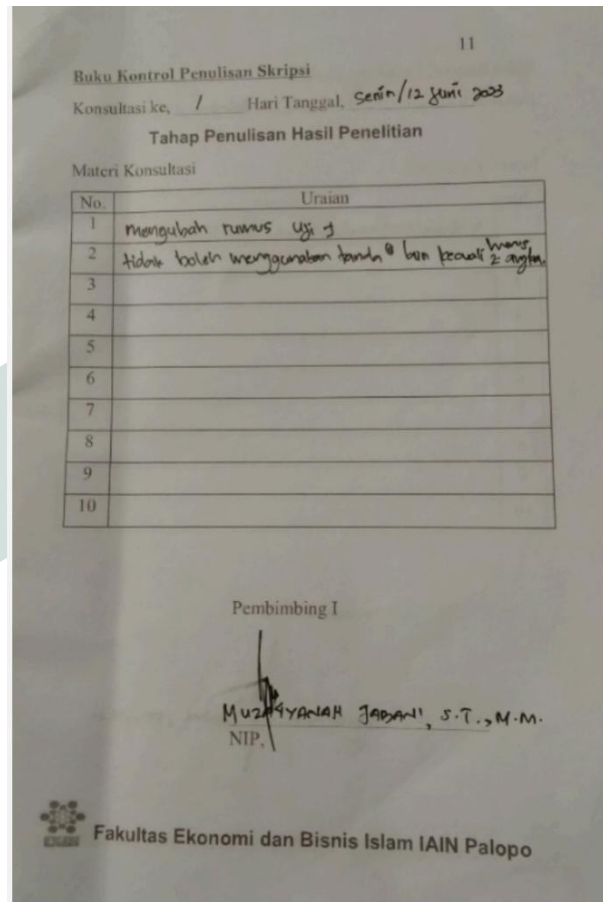 11
Buku Kontrol Penulisan Skripsi
Konsultasi ke, 1 Hari Tanggal, Senin/12 Juni 2023
Tahap Penulisan Hasil Penelitian
Materi Konsultasi
No. Uraian
1 mengubah rumus Uji
2 tidak boleh menggunakan tanda kecuali harus 2 angka.
3
4
5
6
7
8
9
10
Pembimbing I
JABANI, S.T., M.M.
NIP,
Fakultas Ekonomi dan Bisnis Islam IAIN Palopo